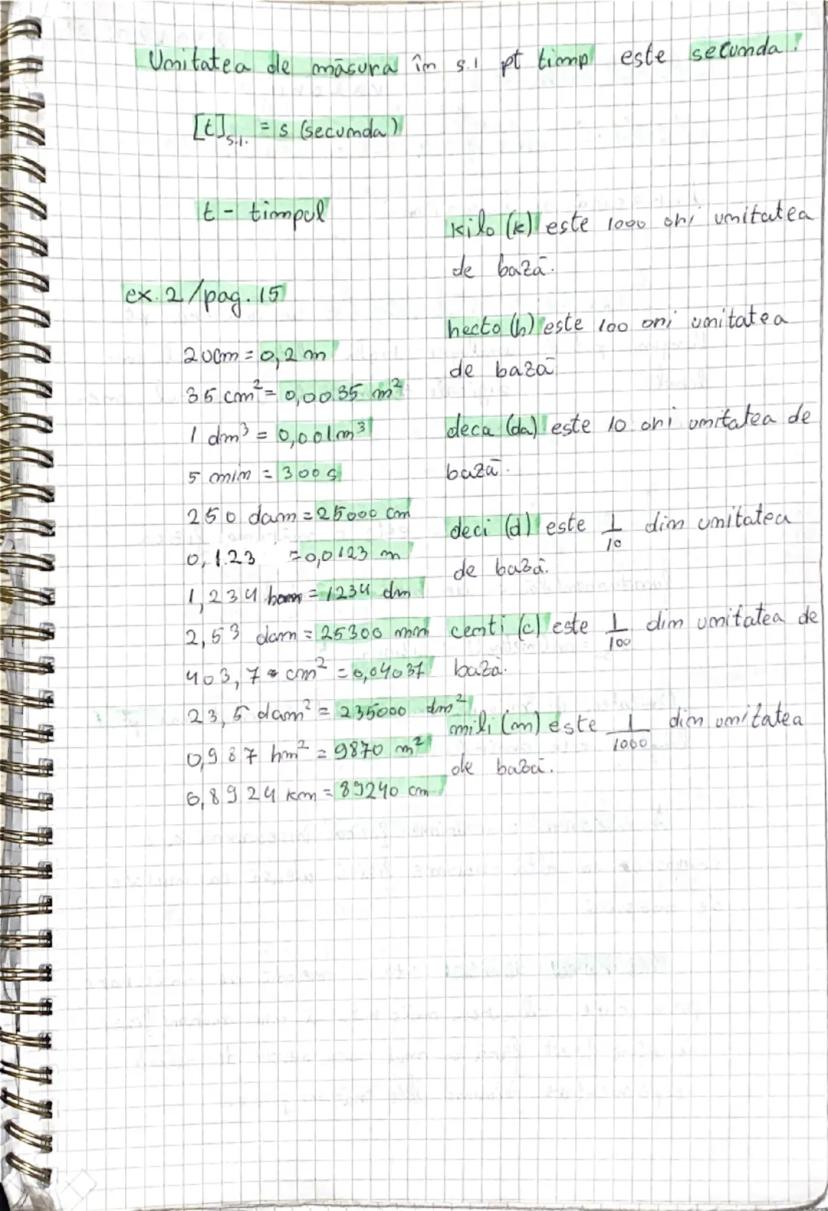 Unitatea de măsura în s.i pt timp este secunda!
[t]s.i. = s (secunda)
t - timpul
ex. 2/pag. 15
20cm = 0,2 m
35 cm² = 0,0035 m²
1 dm³ = 0,001m³
5 min = 300s
250 dam = 25000 cm
0,123 = 0,0123 m
1,234 hm = 1234 dm
2,53 dam = 25300 mm
403,7 cm² = 0,04037
23,5 dam² = 235000 dm²
0,987 hm² = 9870 m²
0,8924 km = 89240 cm
kilo (k) este 1000 ori unitatea
de bază.
hecto (h) este 100 ori unitatea
de bază
deca (da) este 10 ori unitatea de
bază.
deci (d) este 1/10 din unitatea
de bază.
centi (c) este 1/100 din unitatea de
baza.
mili (m) este 1/1000 din unitatea
de bază.